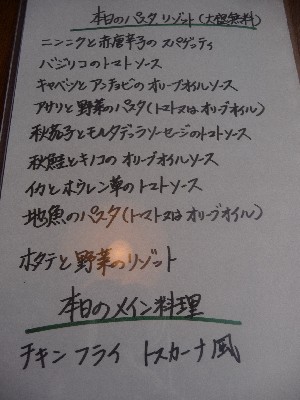 本日のパスタ リゾット(大盛無料)
ニンニクと赤唐辛子のスパゲッティ
バジリコのトマトソース
キャベツとアンチョビのオリーブオイルソース
アサリと野菜のパスタ(トマト又はオリーブオイル)
秋茄子とモルタデッラソーセージのトマトソース
秋鮭とキノコのオリーブオイルソース
イカとホウレン草のトマトソース
地魚のパスタ(トマト又はオリーブオイル)
ホタテと野菜のリゾット
本日のメイン料理
チキンフライ トスカーナ風